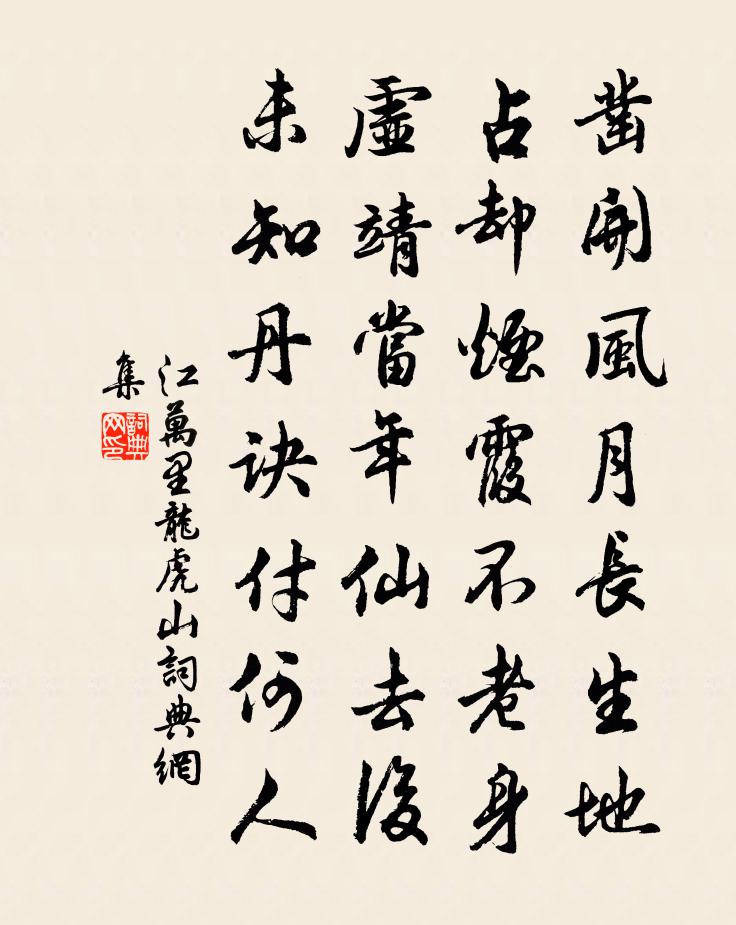 鑿開風月長生地
占却煙霞不老身
虛靖當年仙去後
未知丹訣付何人
江萬里龍虎山詞典網
集
詞典
网印